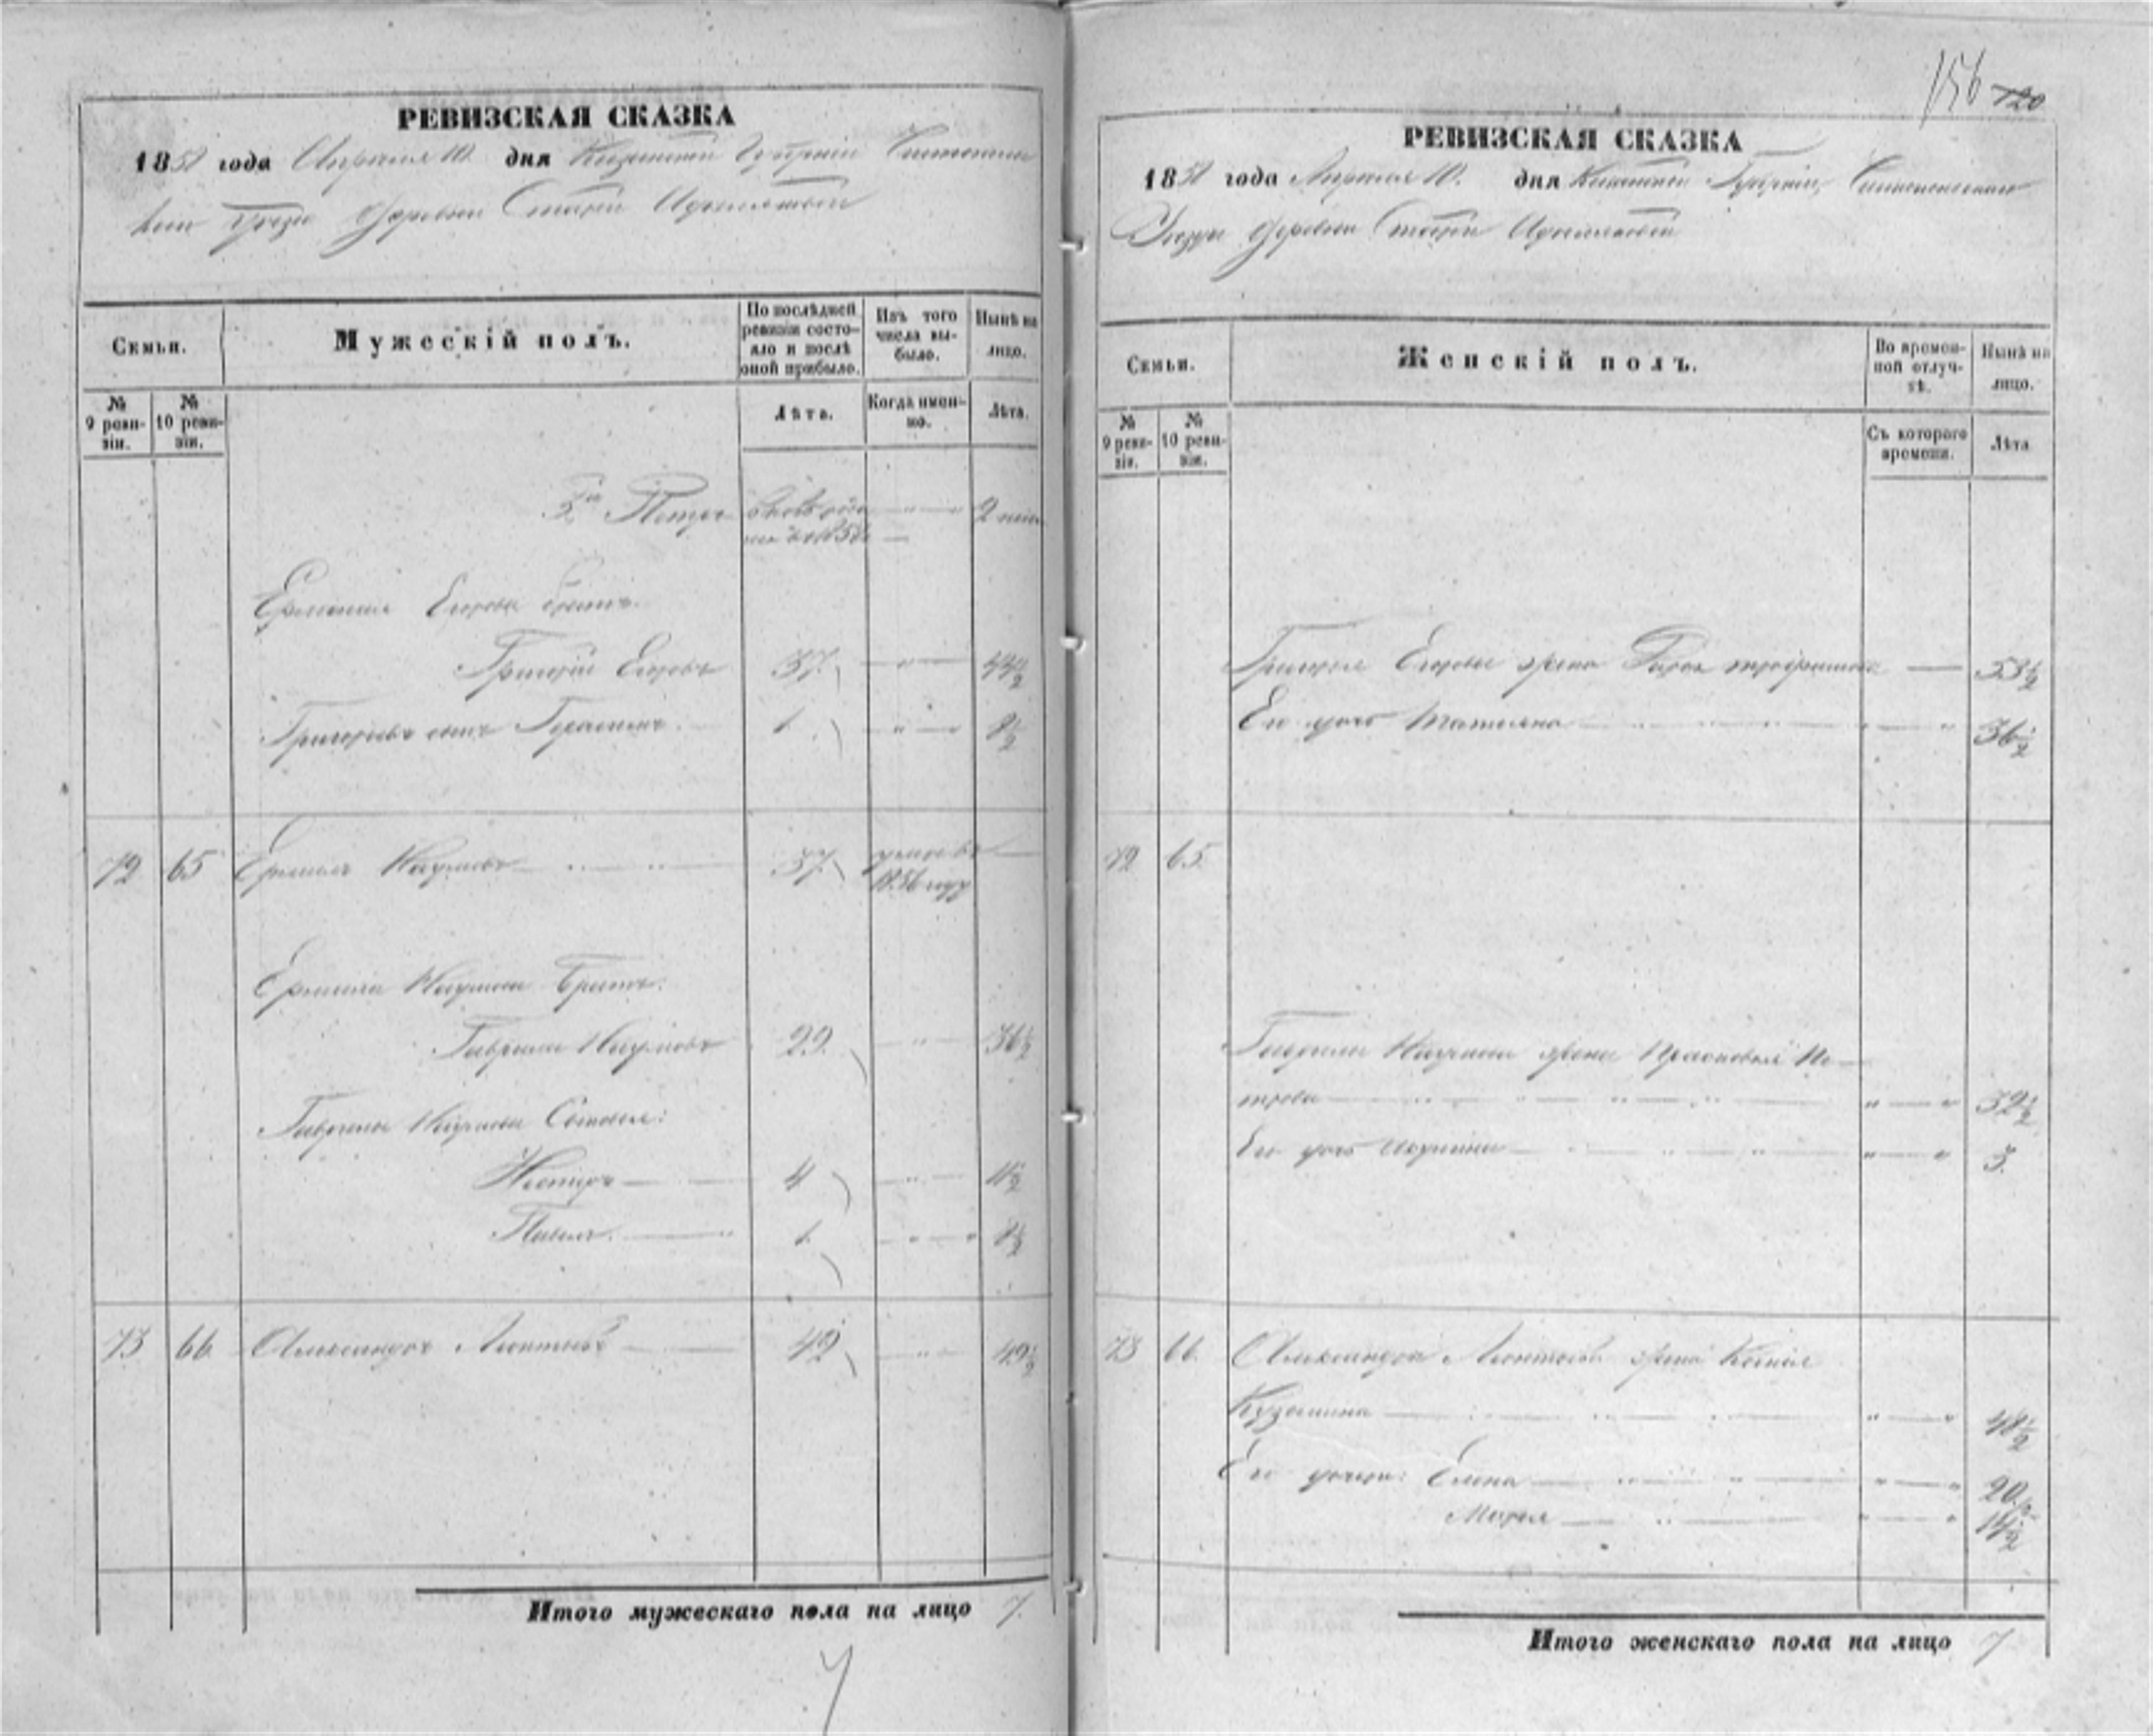 РЕВИЗСКАЯ СКАЗКА
1858 года Апреля 10 дня Казанской Губернiи
Уезда Деревни Старой
Семьи.
Мужескiй полъ.
По послѣдней ревизiи состояло и послѣ оной прибыло.
Изъ того числа выбыло.
Нынѣ на лицо.
№ 9 ревизiи.
№ 10 ревизiи.
Лѣта.
Когда именно.
Лѣта.
Петръ
Ермолая Егорова братъ
Григорiй Егоровъ 37. 44½
Григорьевъ сынъ Герасимъ 1. 8½
72 65 Наумовъ 37. умеръ въ 1856 году
Наумова братъ:
Гаврила Наумовъ 29. 36½
Гаврилы Наумова Сыновья:
Несторъ 4 11½
Павелъ 1. 8½
73 66 Александръ Леонтьевъ 42 49½
Итого мужескаго пола на лицо 7.
7
156 120
РЕВИЗСКАЯ СКАЗКА
1858 года Апреля 10. дня Казанской Губернiи,
Уезда Деревни Старой
Семьи.
Женскiй полъ.
Во временной отлучкѣ.
Нынѣ на лицо.
№ 9 ревизiи.
№ 10 ревизiи.
Съ котораго времени.
Лѣта
Григорья Егорова жена 53½
Его дочь Татьяна 36½
72 65.
Гаврилы Наумова жена Прасковья Пе-
трова 32½
Его дочь 3.
73 66. Александра Леонтьева жена
Кузьмина 48½
Его дочери: Елена 20½
Марья 14½
Итого женскаго пола на лицо 7